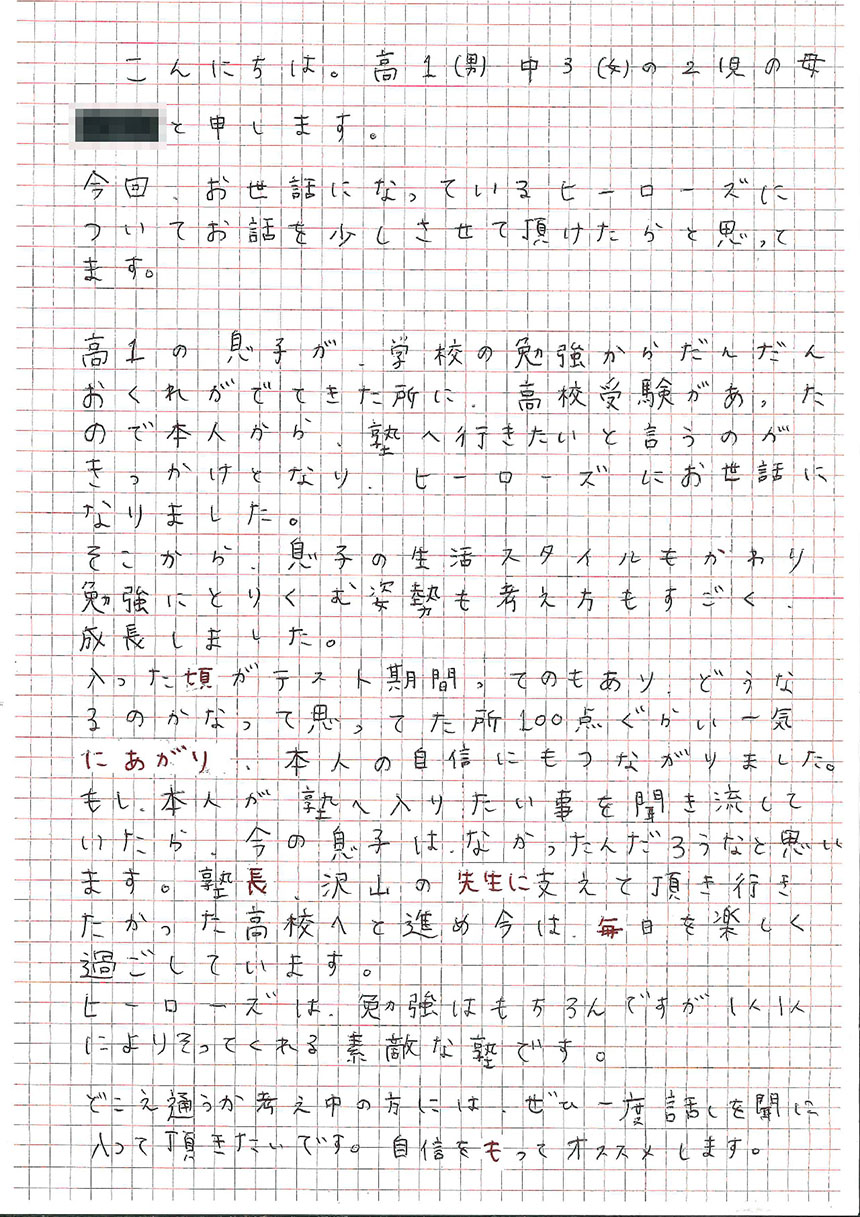 こんにちは。高1(男)中3(女)の2児の母
と申します。
今回、お世話になっているヒーローズに
ついてお話を少しさせて頂けたらと思って
ます。
高1の息子が、学校の勉強からだんだん
おくれがでてきた所に、高校受験があった
ので本人から、塾へ行きたいと言うのが
きっかけとなり、ヒーローズにお世話に
なりました。
そこから、息子の生活スタイルもかわり
勉強にとりくむ姿勢も考え方もすごく、
成長しました。
入った頃がテスト期間ってのもあり、どうな
るのかなって思ってた所100点ぐらい一気
にあがり、本人の自信にもつながりました。
もし、本人が塾へ入りたい事を聞き流して
いたら、今の息子は、なかったんだろうなと思い
ます。塾長、沢山の先生に支えて頂き行き
たかった高校へと進め今は、毎日を楽しく
過ごしています。
ヒーローズは、勉強はもちろんですが1人1人
によりそってくれる素敵な塾です。
どこえ通うか考え中の方には、ぜひ一度話しを聞に
入って頂きたいです。自信をもってオススメします。